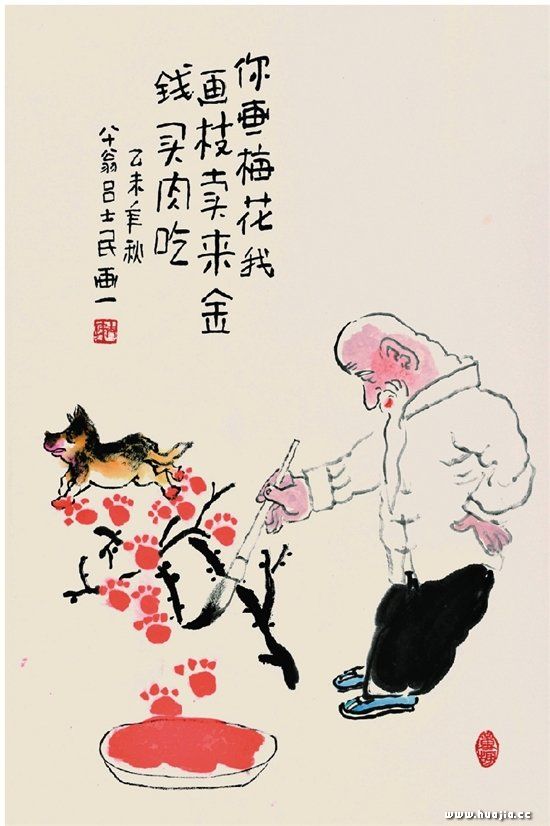 你画梅花我
画枝卖来金
錢买肉吃
乙未年秋
八十翁吕士民画一
www.huajia.cc